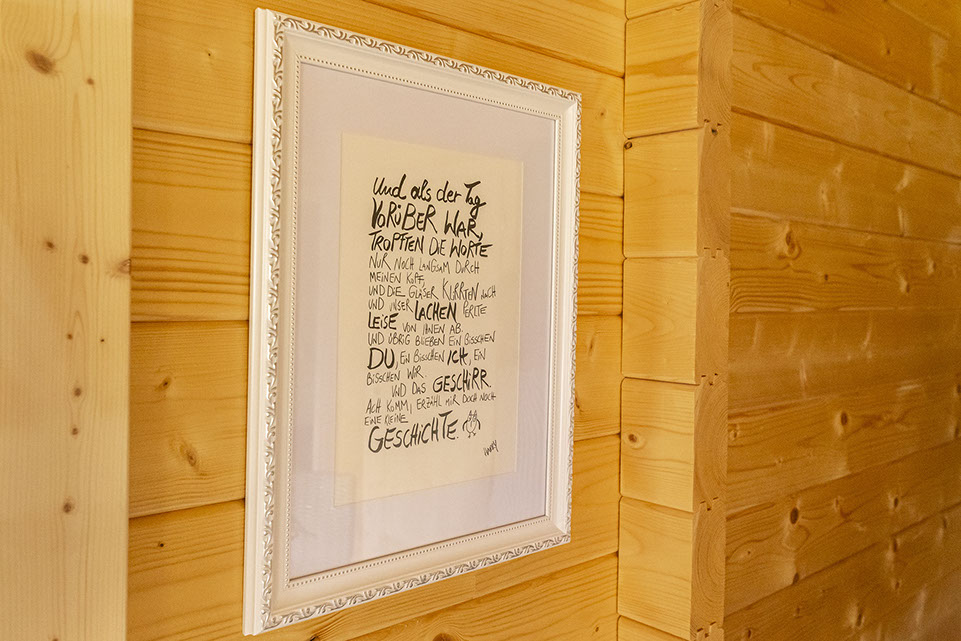 Und als der Tag
VORÜBER WAR,
TROPFTEN DIE WORTE
NUR NOCH LANGSAM DURCH
MEINEN KOPF,
UND DIE GLÄSER KLIRRTEN NOCH
UND UNSER LACHEN PERLTE
LEISE VON IHNEN AB.
UND ÜBRIG BLIEBEN EIN BISSCHEN
DU, EIN BISSCHEN ICH, EIN
BISSCHEN WIR.
UND DAS GESCHIRR.
ACH KOMM, ERZÄHL MIR DOCH NOCH
EINE KLEINE
GESCHICHTE.